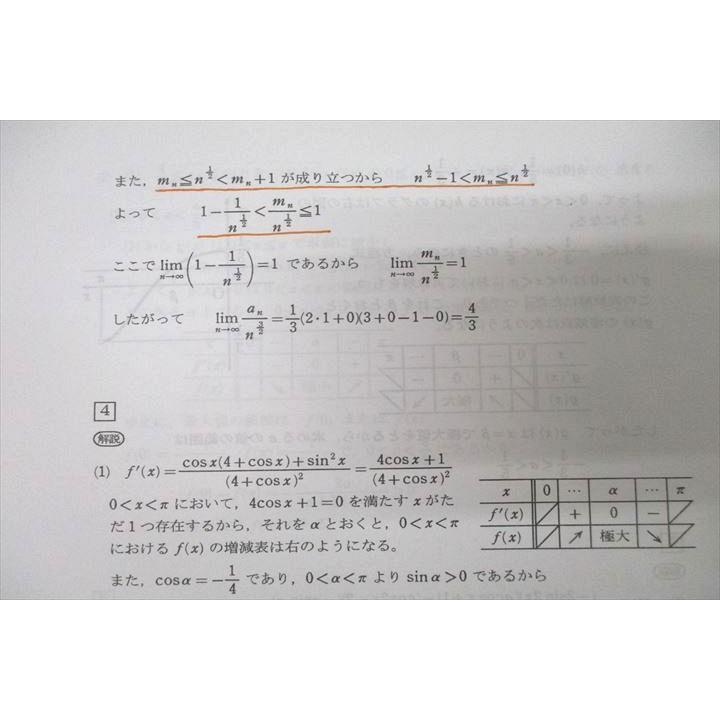 また，m_n≦n^{1/2}<m_n+1 が成り立つから　　n^{1/2}−1<m_n≦n^{1/2}
よって　　1−1/n^{1/2}<m_n/n^{1/2}≦1
ここで lim_{n→∞}(1−1/n^{1/2})=1 であるから　　lim_{n→∞} m_n/n^{1/2}=1
したがって　　lim_{n→∞} a_n/n^{3/2}=1/3(2・1+0)(3+0−1−0)=4/3
4
解説
(1) f′(x)=(cosx(4+cosx)+sin²x)/(4+cosx)²=(4cosx+1)/(4+cosx)²
0<x<π において，4cosx+1=0 を満たす x がた
だ1つ存在するから，それを α とおくと，0<x<π
における f(x) の増減表は右のようになる。
x 0 … α … π
f′(x) + 0 −
f(x) ↗ 極大 ↘
また，cosα=−1/4 であり，0<α<π より sinα>0 であるから